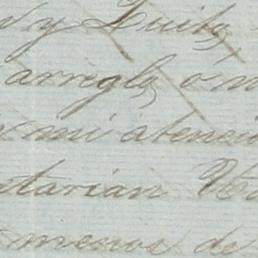 y Luis
arreglo ó m
mi atenció
etarian Vd
menos de